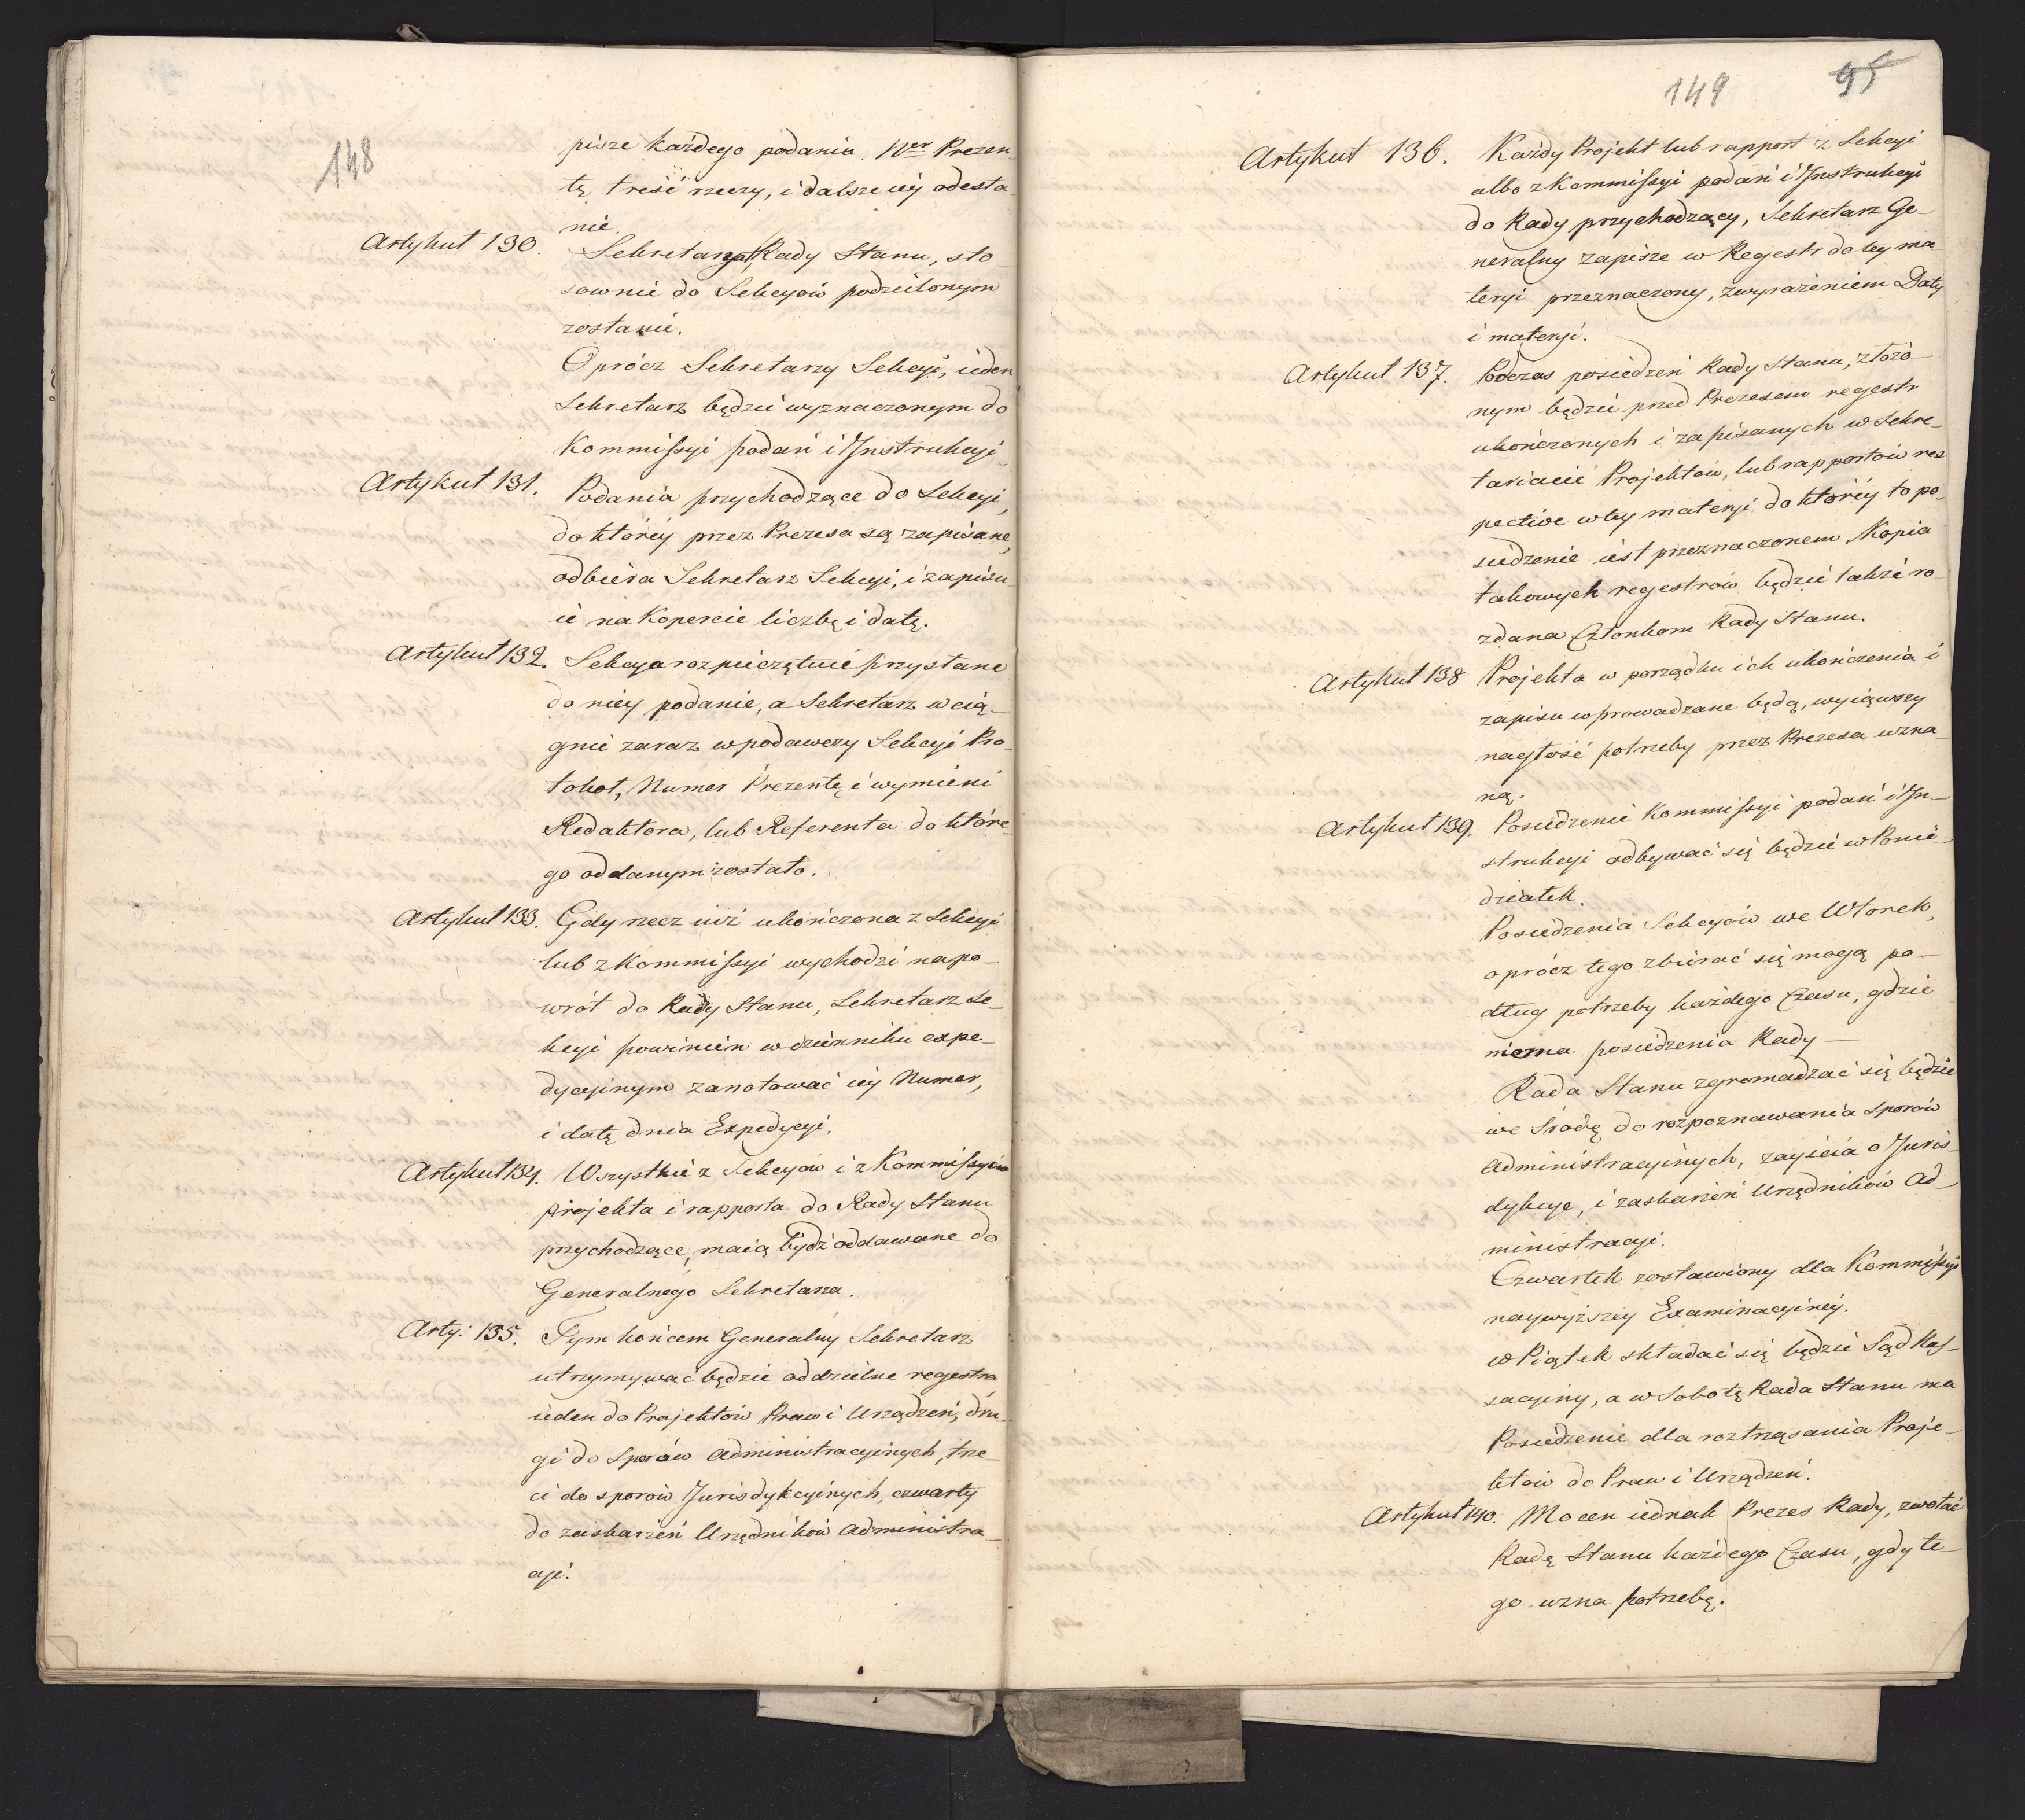 148
pisze każdego podania Ner Prezen-
tę, treść rzeczy, i dalsze iey odesła
nie.
Artykuł 130.
Sekretaryat Rady Stanu, sto-
sownie do Sekcyów podzielonym
zostanie.
Oprócz Sekretarzy Sekcyi, ieden
Sekretarz będzie wyznaczonym do
Kommissyi podań i Instrukcyi
Artykuł 131.
Podania przychodzące do Sekcyi,
do któréy przez Prezesa są zapisane,
odbiera Sekretarz Sekcyi, i zapisu
ie na Kopercie liczbę i datę.
Artykuł 132.
Sekcya rozpieczętuie przysłane
do niey podanie, a Sekretarz wcią-
gnie zaraz w podawczy Sekcyi Pro-
tokoł, Numer Prezentę i wymieni
Redaktora, lub Referenta do które-
go oddanym zostało.
Artykuł 133.
Gdy rzecz iuż ukończona z Sekcyi
lub z Kommissyi wychodzi napo-
wrót do Rady Stanu, Sekretarz Se-
kcyi powinien w dzienniku expe-
dycyinym zanotować iéy Numer,
i datę dnia Expedycyi.
Artykuł 134.
Wszystkie z Sekcyów i z Kommissyiów
projekta i rapporta do Rady Stanu
przychodzące, maią bydź oddawane do
Generalnego Sekretarza.
Arty: 135.
Tym końcem Generalny Sekretarz
utrzymywać będzie oddzielne regestra
ieden do Projektów Praw i Urządzeń, dru-
gi do sporów administracyinych, trze-
ci do sporów Jurisdykcyinych, czwarty
do zaskarzeń Urzędników administra-
cyi.
149
95
Artykuł 136.
Każdy Projekt lub rapport z Sekcyi
albo z Kommissyi podań i Instrukcyi
do Rady przychodzący, Sekretarz Ge-
neralny zapisze w Regestr do tey ma-
teryi przeznaczony, z wyrażeniem Daty
i materyi.
Artykuł 137.
Podczas posiedzeń Rady Stanu, złożo-
nym będzie przed Prezesem regestr
ukończonych i zapisanych w Sekre-
taryacie Projektów, lub rapportów res
pective w tey materyi do któréy to po-
siedzenie iest przeznaczonem, Kopia
takowych regestrów będzie także ro-
zdana Członkom Rady Stanu.
Artykuł 138
Projekta w porządku ich ukończenia i
zapisu wprowadzane będą, wyiąwszy
nagłość potrzeby przez Prezesa uzna-
ną.
Artykuł 139.
Posiedzenie Kommissyi podań i In-
strukcyi odbywać się będzie w Ponie-
działek.
Posiedzenia Sekcyów we Wtorek,
oprócz tego zbierać się mogą po-
dług potrzeby każdego Czasu, gdzie
niema posiedzenia Rady —
Rada Stanu zgromadzać się będzie
we Srodę do rozpoznawania sporów
administracyinych, zayścia o Juris-
dykcye, i zaskarzeń Urzędników Ad-
ministracyi.
Czwartek zostawiony dla Kommissyi
naywyższey Examinacyinéy.
w Piątek składać się będzie Sąd Kas-
sacyiny, a w Sobotę Rada Stanu ma
Posiedzenie dla roztrząsania Proje-
któw do Praw i Urządzeń.
Artykuł 140.
Mocen iednak Prezes Rady, zwołać
Radę Stanu każdego Czasu, gdy te-
go uzna potrzebę.